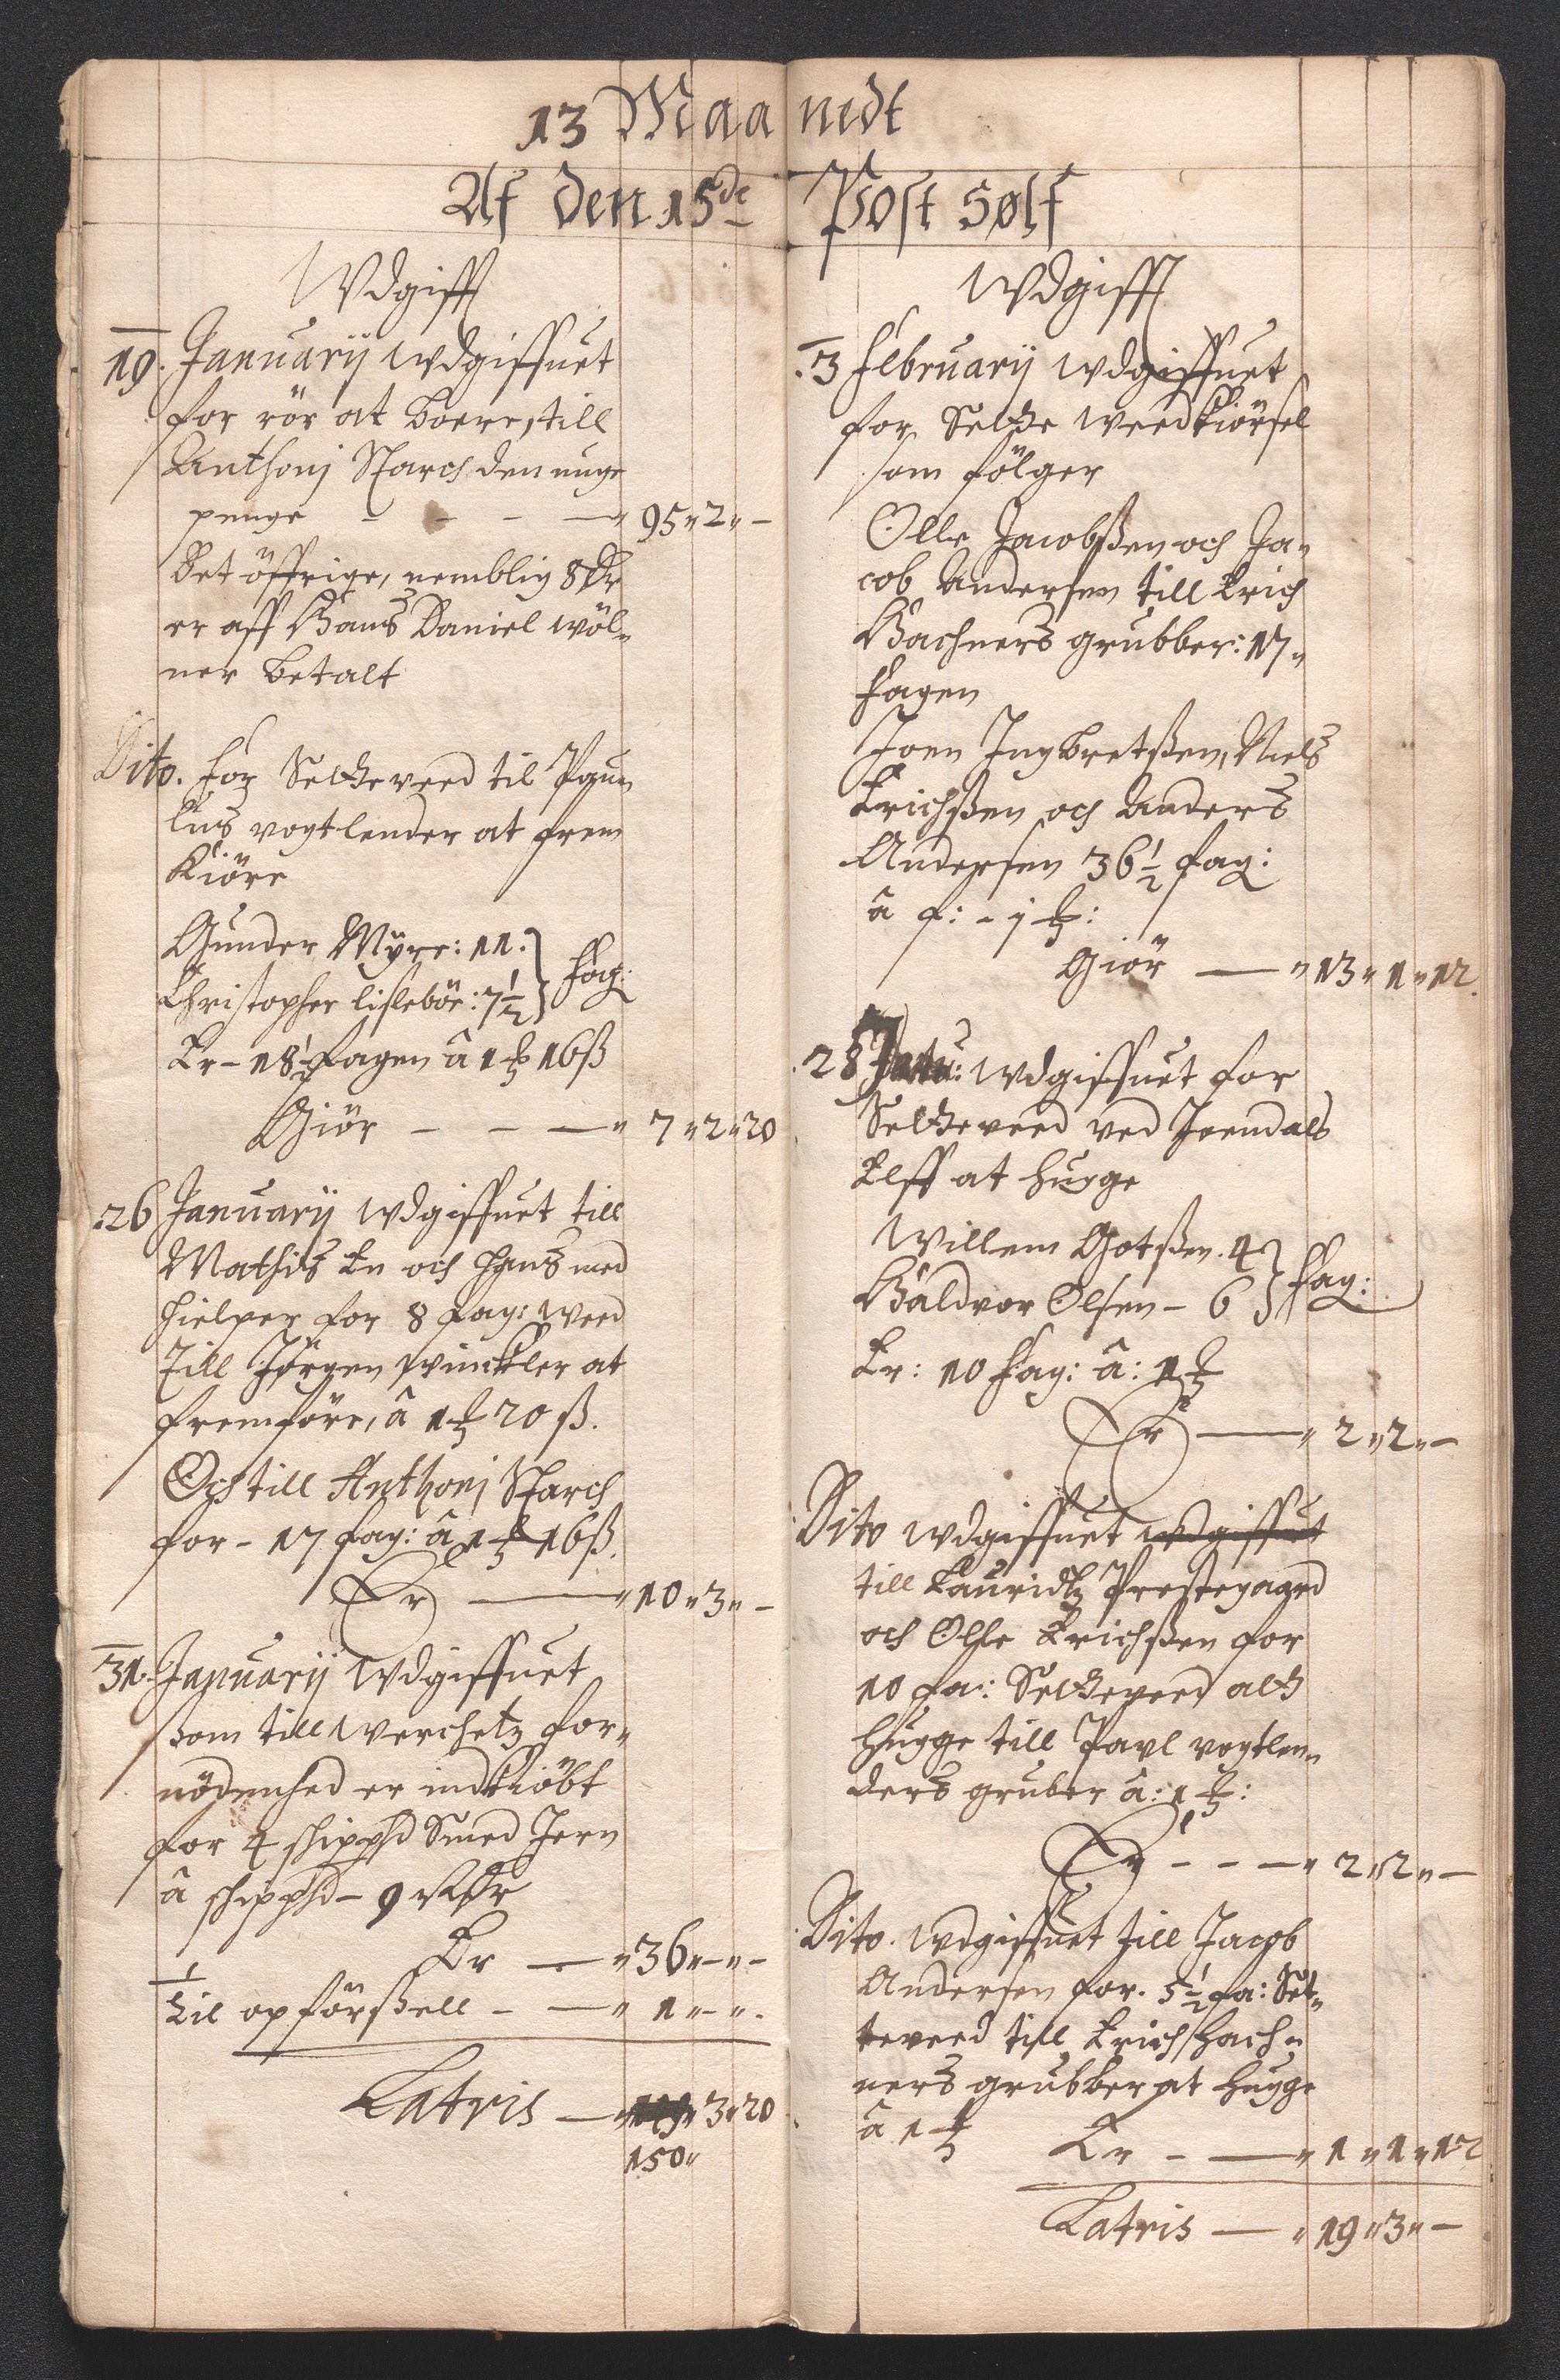 13 Maanedt
Af den 15de Post Sølf
Wdgifft
19. Januarij wdgiffuet
for rör at boere, till
Anthonj Starch den unge
penge - - - — " 95 " 2 " -
Det öffrige, nemblig 8 Dr
er aff Hans Daniel wöl„
ner betalt
Dito. for Setteveed til Pau„
lus vogtlender at frem
kiöre
Gunder Myre: 11.
Christopher lislebör: 7½ } fag:
Er - 18½ fagen â 1 ℔ 16 ß
Giör - - — " 7 " 2 " 20
26 Januarij wdgiffuet till
Mathis En och Hans med
hielper for 8 fag: weed
till Jörgen winckler at
fremföre, â 1 ℔ 20 ß.
Och till Anthonj Starch
for - 17 fag: â 1 ℔ 16 ß.
Er — " 10 " 3 " -
31. Januarij wdgiffuet
som till werchetz for„
nödenhed er indkiöbt
for 4 shippd Smed Jern
â shippd - 9 Rdr
Er — " 36 " - " -
til opförßell - — " 1 " - " -
Latris — " " 3 " 20
150 "
Wdgifft
3 februarij wdgiffuet
for Sette weedkiörsel
som fölger
Olle Jacobßen och Ja„
cob Andersen till Erich
Bachners grubber: 17„
fagen
Joen Ingbretßen, Niels
Erichßen och Anders
Andersen 36½ fag:
â f: - j ℔:
Giör — " 13 " 1 " 12.
28 Janu: wdgiffuet for
Setteveed ved Joendals
Elff at hugge
Willem Gotßen. 4
Haldvor Olsen - 6 } fag:
Er: 10 fag: â: 1 ℔
Er — " 2 " 2 " -
Dito wdgiffuet wdgiffuet
till Lauridtz Prestegaard
och Olle Erichßen for
10 fa: Setteveed att
hugge till Paul vogtlen„
ders gruber â: 1 ℔:
Er - - — " 2 " 2 " -
Dito. wdgiffuet till Jacob
Andersen for. 5½ fa: Set„
teveed till Erich Bach„
ners grubber at hugge
â 1 ℔ Er - — " 1 " 1 " 12
Latris — " 19 " 3 " -